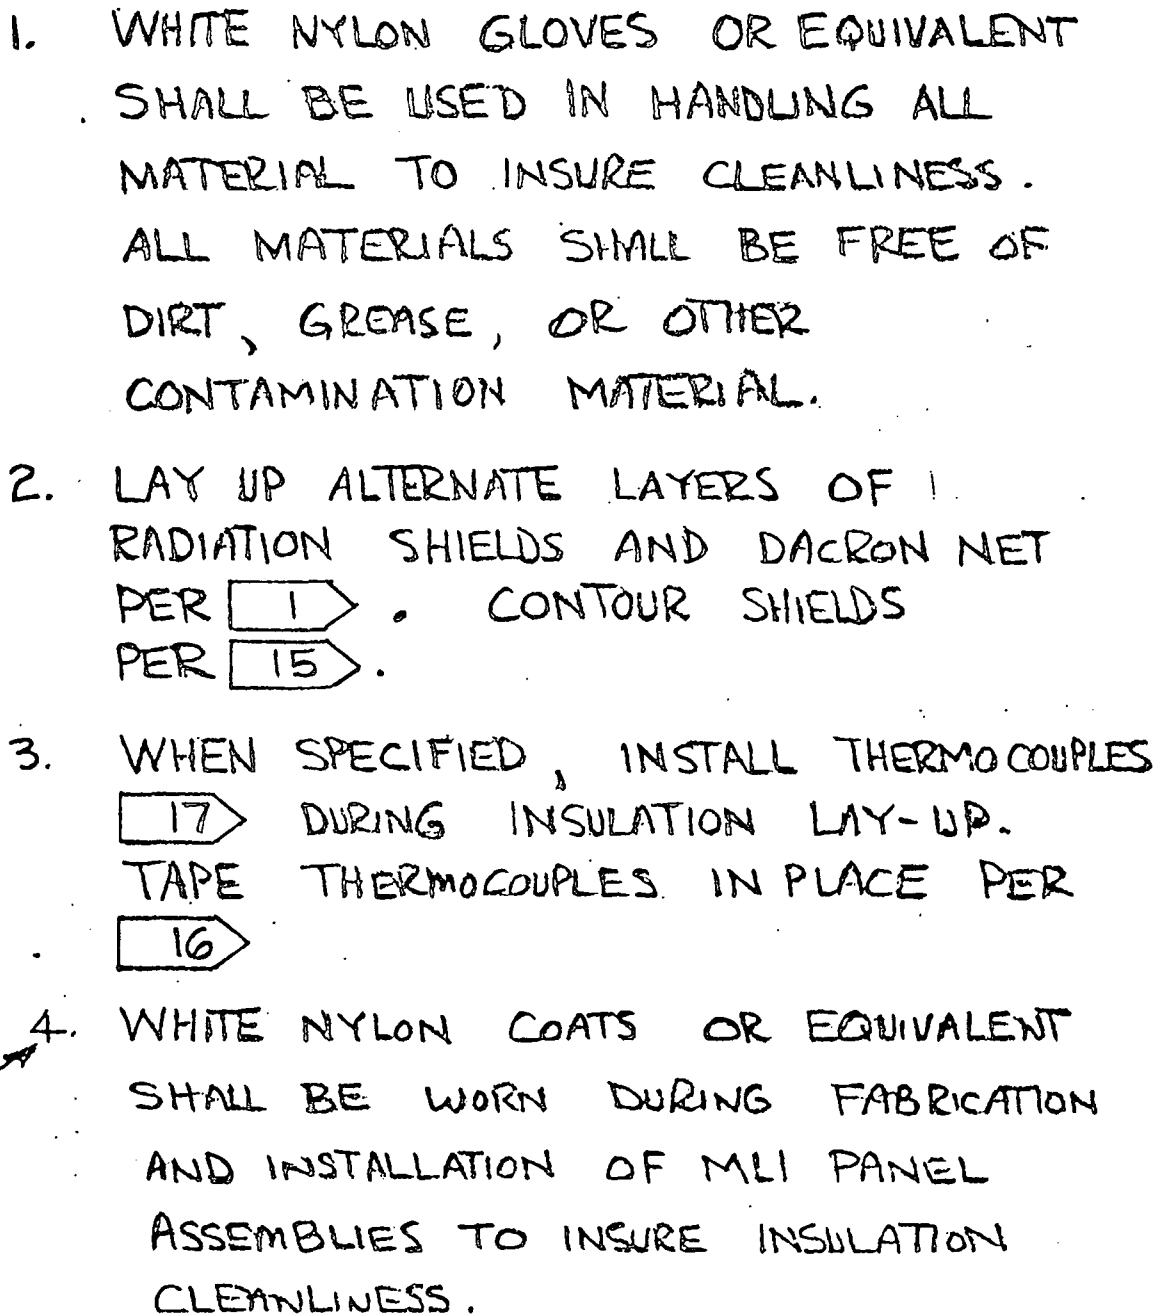 1. WHITE NYLON GLOVES OR EQUIVALENT
SHALL BE USED IN HANDLING ALL
MATERIAL TO INSURE CLEANLINESS.
ALL MATERIALS SHALL BE FREE OF
DIRT, GREASE, OR OTHER
CONTAMINATION MATERIAL.
2. LAY UP ALTERNATE LAYERS OF
RADIATION SHIELDS AND DACRON NET
PER 1. CONTOUR SHIELDS
PER 15.
3. WHEN SPECIFIED, INSTALL THERMOCOUPLES
17 DURING INSULATION LAY-UP.
TAPE THERMOCOUPLES IN PLACE PER
16
4. WHITE NYLON COATS OR EQUIVALENT
SHALL BE WORN DURING FABRICATION
AND INSTALLATION OF MLI PANEL
ASSEMBLIES TO INSURE INSULATION
CLEANLINESS.